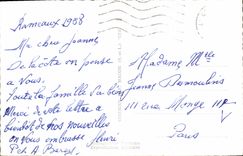 Rameaux 1958
Ma chère Jeanne
De la côte on pense
à Vous.
Toute la famille va bien
Merci de votre lettre à
bientôt de nos nouvelles
on vous embrasse Henri
Pch. A. Berg
Madame Mlle
Jeanne Dumoulins
111 rue Monge 111
V
Paris